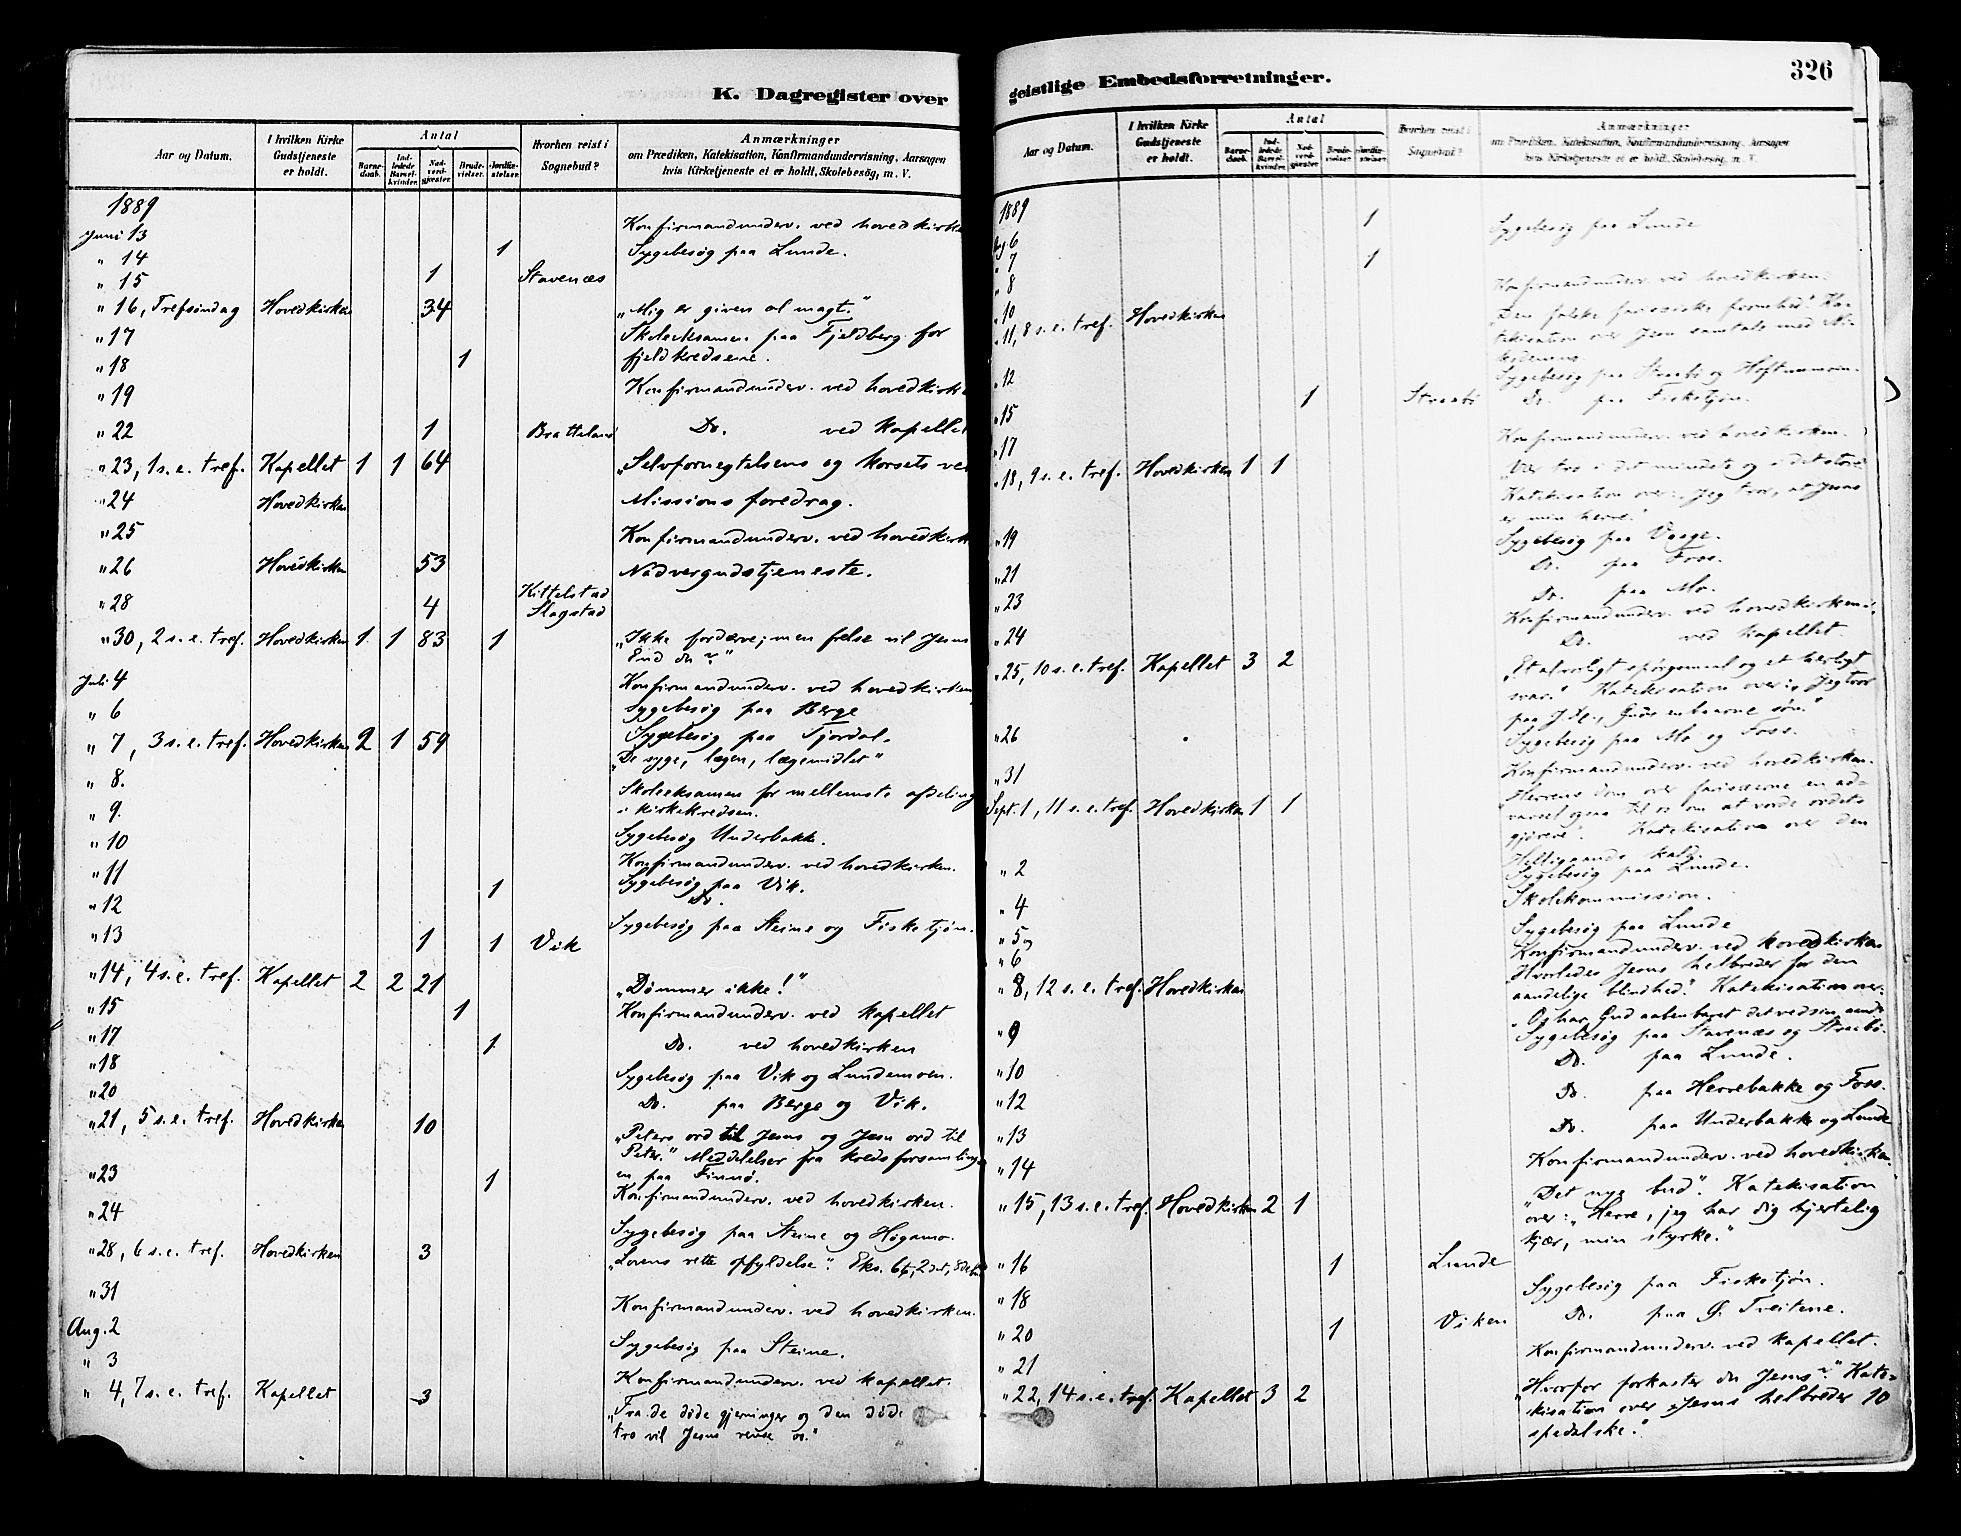 K. Dagregister over
Aar og Datum.
I hvilken Kirke Gudstjeneste er holdt.
Antal
Barnedaab.
Indledede Barselkvinder.
Nadverdgjester.
Brudevielser.
Jordfæstelser.
Hvorhen reist i Sognebud?
Anmærkninger
om Prædiken, Katekisation, Konfirmandundervisning, Aarsagen
hvis Kirketjeneste ei er holdt, Skolebesög, m. V.
1889
Juni 13 Konfirmandunderv. ved hovedkirk
" 14 1 Sygebesøg paa Lunde.
" 15 1 Stavenæs
" 16, Trefsöndag Hovedkirken 34 "Mig er given al magt."
" 17 Skoleeksamen paa Fjeldberg for
" 18 1 fjeldkredsene.
" 19 Konfirmandunderv. ved hovedkirk
" 22 1 Bratteland Do. ved kapellet
" 23, 1 s.e. tref. Kapellet 1 1 64 "Selvfornegtelsens og korsets vei
" 24 Hovedkirken Missionsforedrag.
" 25 Konfirmandunderv. ved hovedkirk
" 26 Hovedkirken 53 Nadvergudstjeneste.
" 28 4 Kittelstad
Slogstad
" 30, 2 s.e. tref. Hovedkirken 1 1 83 1 "Ikke fordærve, men frelse vil Jesus
End du?"
Juli 4 Konfirmandunderv. ved hovedkirken
" 6 Sygebesøg paa Berge
" 7, 3 s.e. tref. Hovedkirken 2 1 59 Sygebesøg paa Fjordal.
"De syge, lægen, lægemidlet"
" 8. Skoleeksamen for mellemste afdeling
" 9. i kirkekredsen.
" 10 Sygebesøg Underbakke.
" 11 Konfirmandunderv. ved hovedkirken.
1 Sygebesøg paa Vik.
" 12 Do.
Sygebesøg paa Steine og Fisketjøn.
" 13 1 1 Vik
" 14, 4 s.e. tref. Kapellet 2 2 21 "Dømmer ikke!"
" 15 1 Konfirmandunderv. ved kapellet
" 17 1 Do. ved hovedkirken
" 18 Sygebesøg paa Vik og Lundemoen.
" 20 Do. paa Berge og Vik.
" 21, 5 s.e. tref. Hovedkirken 10 "Peters ord til Jesus og Jesu ord til
Peter." Meddelelser fra kredsforsamling
" 23 1 en paa Finnø.
Konfirmandunderv. ved hovedkirken.
" 24 Sygebesøg paa Steine og Høgamo.
" 28, 6 s.e. tref. Hovedkirken 3 "Lovens rette opfyldelse".
" 31 Konfirmandunderv. ved hovedkirken.
Aug. 2 Sygebesøg paa Steine.
" 3 Konfirmandunderv. ved kapellet.
" 4, 7 s.e. tref. Kapellet 3 "Fra de døde gjerninger og den døde
tro vil Jesus rense os."
geistlige Embedsforretninger.
326
Aar og Datum.
I hvilken Kirke Gudstjeneste er holdt.
Antal
Barnedaab.
Indledede Barselkvinder.
Nadverdgjester.
Brudevielser.
Jordfæstelser.
Hvorhen reist i Sognebud?
Anmærkninger
om Prædiken, Katekisation, Konfirmandundervisning, Aarsagen
hvis Kirketjeneste ei er holdt, Skolebesög, m. V.
1889
1 Sygebesøg paa Lunde
Aug 6
" 7 1
" 8 Konfirmandunderv. ved hovedkirken.
" 10
" 11, 8 s.e. tref. Hovedkirken "Den falske farisæiske fromhed." Ka-
tekisation over Jesu samtale med Ni-
kodemus
" 12 Sygebesøg paa Straabø og
1 Straabø Do. paa Fisketjøn.
" 15
" 17 Konfirmandunderv. ved hovedkirken.
" 18, 9 s.e. tref. Hovedkirken 1 1 "Vær tro i det mindste og i det store"
Katekisation over: "Jeg tror, at Jesus
er min herre."
" 19 Sygebesøg paa Vaage.
Do. paa Foss.
" 21 Do. paa Mo.
" 23 Konfirmandunderv. ved hovedkirken.
" 24 Do. ved kapellet.
" 25, 10 s.e. tref. Kapellet 3 2 "Et alvorligt spørgsmaal og et herligt
svar." Katekisation over: "Jeg tror
paa J. Kr., Guds enbaarne søn."
" 26 Sygebesøg paa Mo og Foss.
" 31 Konfirmandunderv. ved hovedkirken.
Sept. 1, 11 s.e. tref. Hovedkirken 1 1 Herrens dom over farisæerne en ad-
varsel ogsaa til os om at vorde ordets
gjørere". Katekisation over den
Helligaands kald.
" 2 Sygebesøg paa Lunde.
" 4 Skolekommission.
" 5 og Sygebesøg paa Lunde
" 6 Konfirmandunderv. ved hovedkirken
" 8, 12 s.e. tref. Hovedkirken Hvorledes Jesus helbreder for den
aandelige blindhed." Katekisation over:
"Og har Gud aabenbaret det ved sin aand"
" 9 Sygebesøg paa Stavenæs og Straabø.
" 10 Do. paa Lunde.
" 12 Do. paa Herrebakke og Foss.
" 13 Do. paa Underbakke og Lunde
" 14 Konfirmandunderv. ved hovedkirken.
" 15, 13 s.e. tref. Hovedkirken 2 1 "Det nye bud". Katekisation
over: "Herre, jeg har dig hjertelig
kjær, min styrke."
" 16 1 Lunde
" 18 Sygebesøg paa Fisketjøn.
" 20 1 Viken Do. paa G. Treitene.
" 21 Konfirmandunderv. ved kapellet.
" 22, 14 s.e. tref. Kapellet 3 2 "Hvorfor forkaster du Jesus?" Kate-
kisation over "Jesus helbreder 10
spedalske."